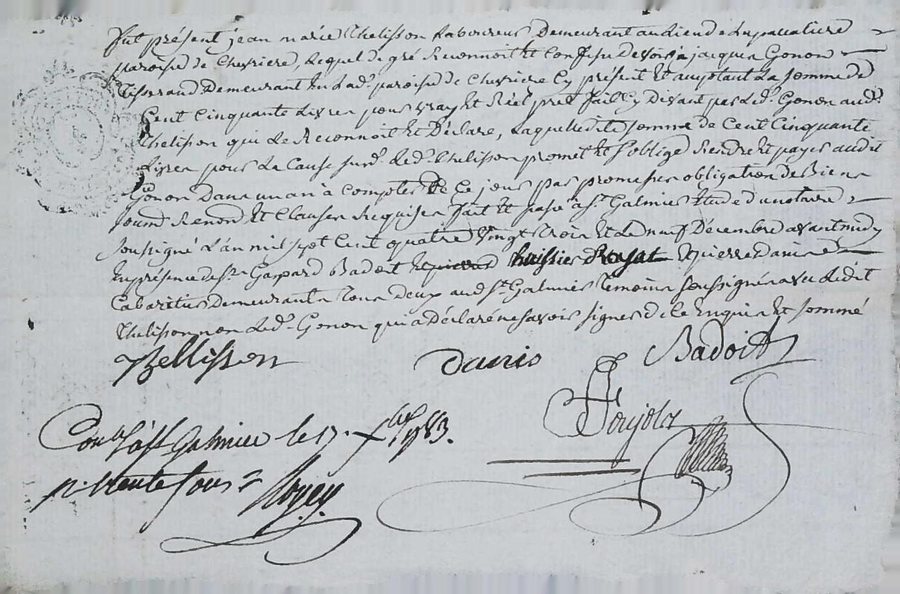 fut présent jean marie thelisson Laboureur Demeurant au lieu de
paroisse de Chevriere, Lequel de gré Reconnoit et Confesse devoir à jacque Gonon
tisserand Demeurant en Lad. paroisse de Chevriere Cy présent Et acceptant La somme de
Cent Cinquante Livres pour vray et Réel pret fait Cy Devant par Led. Gonon aud.
thelisson qui Le Reconnoit et Déclare, Laquelle dite somme de Cent Cinquante
Livres pour La Cause susd. Led. thelisson promet et s'oblige Rendre et payer audit
Gonon Dans un an à Compter de Ce jour par promesse obligation de Biens
soumd Renond Et Clauses Requises fait et passé à St. Galmier Etude du notaire
soussigné L'an mil sept Cent quatre Vingt trois et Le neuf Décembre avant midy
En présence de Sr. Gaspard Badoit huissier Royal Et pierre Danis
Cabaretier Demeurants Tous deux aud. St. Galmier temoins soussignés avec Ledit
thelisson non Led. Gonon qui a déclaré ne savoir signer de ce Enquis Et sommé
thellisson Danis Badoit
Ponjolz
Con.lé à St. Galmier le 17. xbre 1783.
r. trente sous